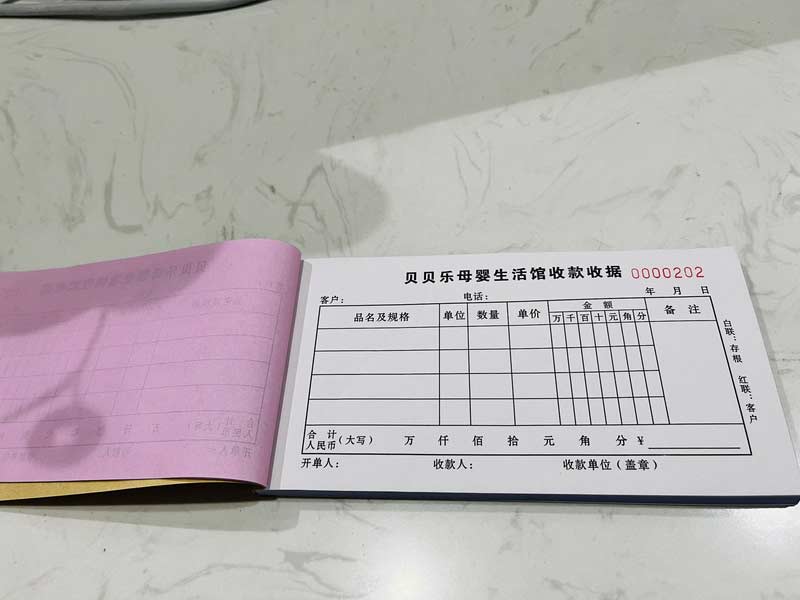 贝贝乐母婴生活馆收款收据 0000202
客户： 电话： 年 月 日
品名及规格 单位 数量 单价 金额 备注
万 千 百 十 元 角 分
合计
人民币 (大写) 万 仟 佰 拾 元 角 分 ¥
开单人： 收款人： 收款单位（盖章）
白联：存根 红联：客户